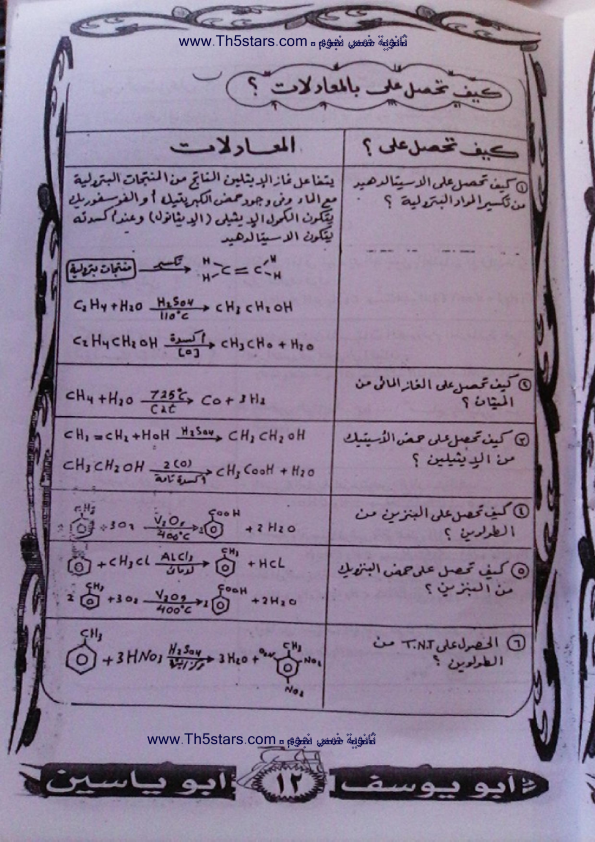 www.Th5stars.com - ثانوية خمس نجوم
كيف تحصل على بالمعادلات ؟
كيف تحصل على ؟
المعادلات
① كيف تحصل على الاسيتالدهيد
من تكسير المواد البترولية ؟
يتفاعل غاز الإيثلين الناتج من المنتجات البترولية
مع الماء وفي وجود حمض الكبريتيك أو الفوسفوريك
يتكون الكحول الإيثيلي (الإيثانول) وعند أكسدته
يتكون الاسيتالدهيد
منتجات بترولية تكسير H H C = C H H
C2H4 + H2O H2SO4 110°C CH3CH2OH
C2H4CH2OH أكسدة [O] CH3CHO + H2O
② كيف تحصل على الغاز المائى من
الميثان ؟
CH4 + H2O 725°C Cat CO + 3H2
③ كيف تحصل على حمض الأسيتيك
من الإيثيلين ؟
CH2 = CH2 + HOH H2SO4 CH3CH2OH
CH3CH2OH 2(O) أكسدة تامة CH3COOH + H2O
④ كيف تحصل على البنزين من
الطولوين ؟
CH3 + 3O2 V2O5 400°C COOH + 2H2O
⑤ كيف تحصل على حمض البنزويك
من البنزين ؟
+ CH3Cl AlCl3 CH3 + HCL
2 CH3 + 3O2 V2O5 400°C 2 COOH + 2H2O
⑥ الحصول على T.N.T من
الطولوين ؟
CH3 + 3HNO3 H2SO4 3H2O + CH3 O2N NO2 NO2
www.Th5stars.com - ثانوية خمس نجوم
أبو يوسف ١٢ أبو ياسين